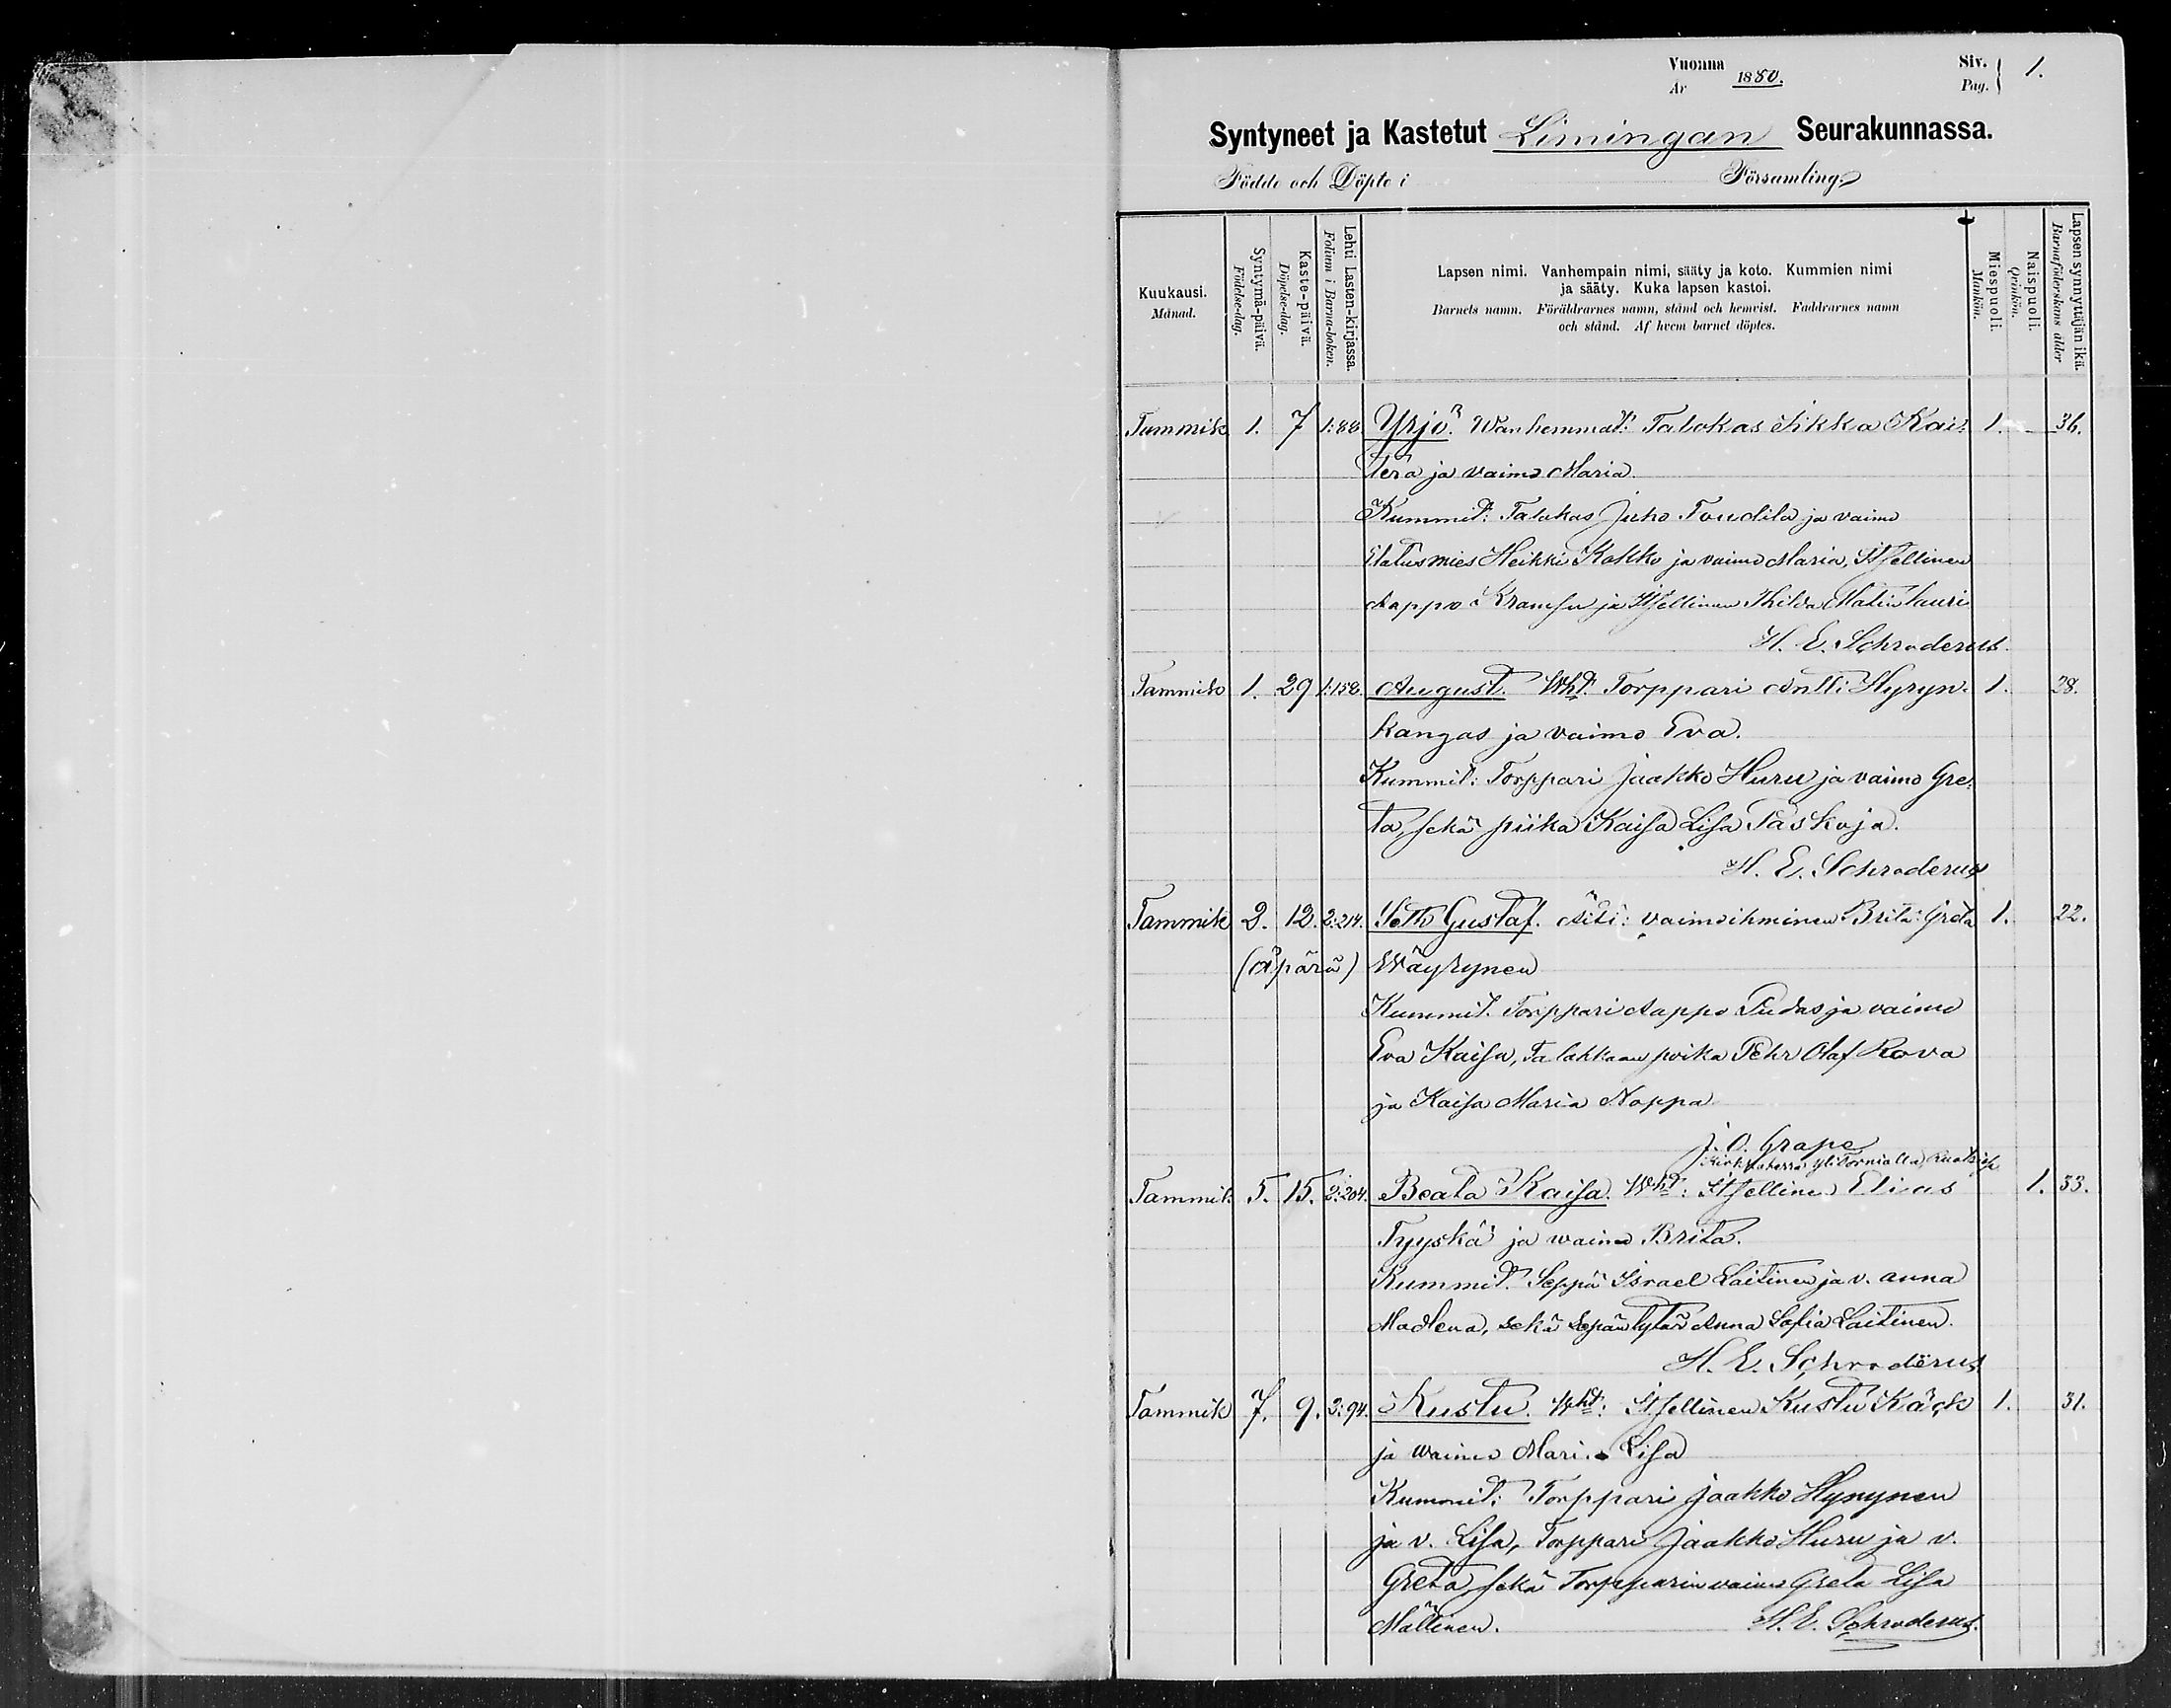 Vuonna 1880. Siv. 1.
År Pag.
Syntyneet ja Kastetut Limingan Seurakunnassa.
Födde och Döpte i Församling.
Kuukausi.
Månad.
Syntymä-päivä.
Födelse-dag.
Kaste-päivä.
Döpelse-dag.
Lehti Lasten-kirjassa.
Folium i Barna-boken.
Lapsen nimi. Vanhempain nimi, sääty ja koto. Kummien nimi
ja sääty. Kuka lapsen kastoi.
Barnets namn. Föräldrarnes namn, stånd och hemvist. Faddrarnes namn
och stånd. Af hvem barnet döptes.
Miespuoli.
Mankön.
Naispuoli.
Qvinkön.
Lapsen synnyttäjän ikä.
Barnaföderskans ålder
Tammik 1. 7 1:88. Yrjö. Wanhemmat: Talokas Iikka Kai: 1. 36.
tera ja vaimo Maria.
Kummit: Talokas Juho Toudila ja vaimo
Elatusmies Heikki Kokko ja vaimo Maria, Itsellinen
Aappo ja Itsellinen Matinlauri
H. E. Schroderus.
Tammik 1. 29 1:158. August. Wht. Torppari Antti Hyryn- 1. 28.
kangas ja vaimo Eva.
Kummit: Torppari Jaakko Huru ja vaimo Gre:
ta, sekä piika Kaisa Lisa Paskoja.
H. E. Schroderus
Tammik 2. 12. 2:214. Seth Gustaf. Äiti: vaimoihminen Brita Greta 1. 22.
(äpärä) Wäyrynen
Kummit. Torppari Aappo Pudas ja vaimo
Eva Kaisa, Talokkaan poika Pehr Olaf Rova
ja Kaisa Maria Noppa
J. O. Grape
Kirkkoherra Ylitorniolla Ruotsissa
Tammik 5. 15. 2:204. Beata Kaisa. Wht: Itsellinen Elias 1. 33.
Tyyskä ja waimo Brita.
Kummit. Seppä Israel Laitinen ja v. Anna
Madlena, sekä Sepän tytär Anna Sofia Laitinen.
H. E. Schroderus.
Tammik 7. 9. 2:94. Kustu. Wht: Itsellinen Kustu Käck 1. 31.
ja waimo Mari. Lisa
Kummit: Torppari Jaakko Hynynen
ja v. Lisa, Torppari Jaakko Huru ja v.
Greta, sekä Torpparin vaimo Greta Lisa
Mällinen. H. E. Schroderus.